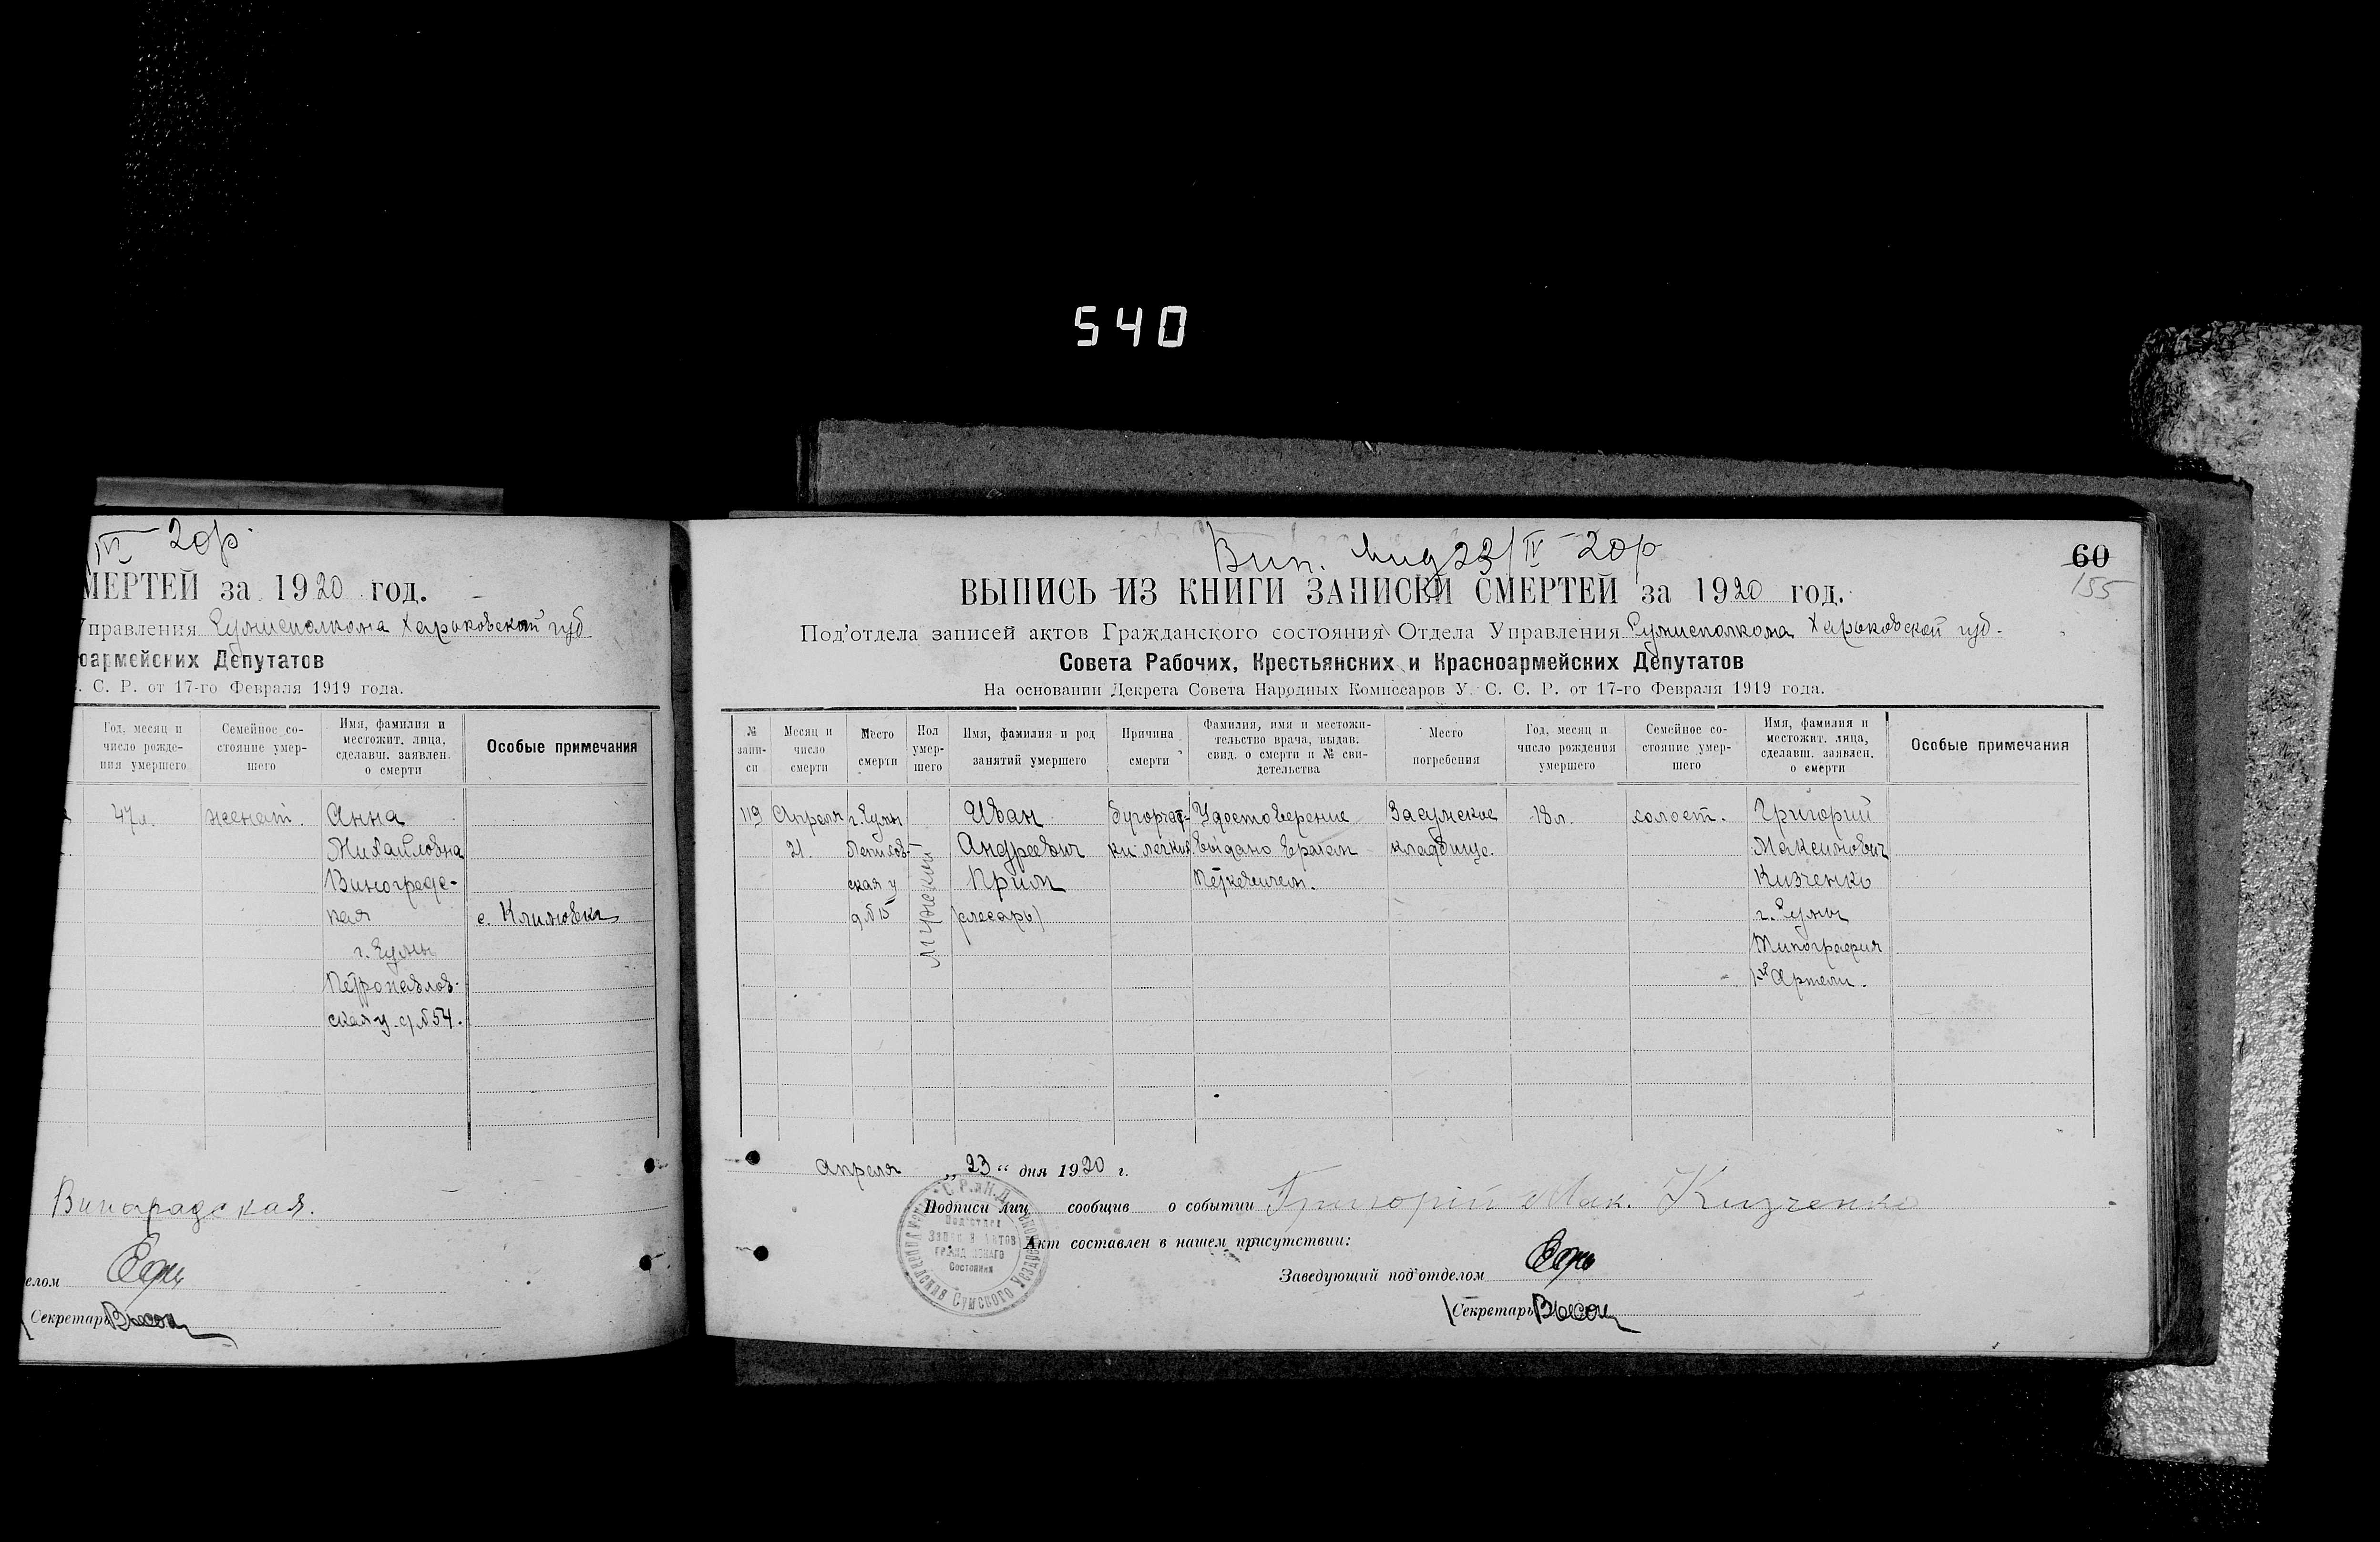 540
IV – 20р.
МЕРТЕЙ за 1920 год.
Управления Сумисполкома Харьковской губ
оармейских Депутатов
. С. Р. от 17-го Февраля 1919 года.
Год, месяц и число рожде- ния умершего
Семейное со- стояние умер- шего
Имя, фамилия и местожит. лица, сделавш. заявлен. о смерти
Особые примечания
47 л.
женат.
Анна
Михайловна
Виноградс-
кая
г. Сумы
Петропавлов-
ская у. д. № 54.
с. Климовка
Винарадская.
елом
Секретарь Высоц
Вип. вид 23/IV – 20р
60
155
ВЫПИСЬ ИЗ КНИГИ ЗАПИСЕЙ СМЕРТЕЙ за 1920 год.
Под'отдела записей актов Гражданского состояния Отдела Управления Сумисполкома Харьковской губ.
Совета Рабочих, Крестьянских и Красноармейских Депутатов
На основании Декрета Совета Народных Комиссаров У. С. С. Р. от 17-го Февраля 1919 года.
№ запи- си
Месяц и число смерти
Место смерти
Пол умер- шего
Имя, фамилия и род занятий умершего
Причина смерти
Фамилия, имя и местожи- тельство врача, выдав. свид. о смерти и № сви- детельства
Место погребения
Год, месяц и число рождения умершего
Семейное со- стояние умер- шего
Имя, фамилия и местожит. лица, сделавш. заявлен. о смерти
Особые примечания
119
Апреля
21.
г. Сумы
ская у
д № 15
мужской
Иван
Андреевич
Прим
(слесарь)
бугорчат-
ки легких
Удостоверение
выдано врачем
Засумское
кладбище.
18 л.
холост.
Григорий
Максимович
Кизченко
г. Сумы
Типография
Артели.
апреля „23“ дня 1920 г.
Подписи лиц сообщив о событии Григорій Мак. Кизченко
Акт составлен в нашем присутствии:
Заведующий под'отделом
Секретарь Высоц
Под'отдел
Записи Актов
Гражданскаго
Состояния